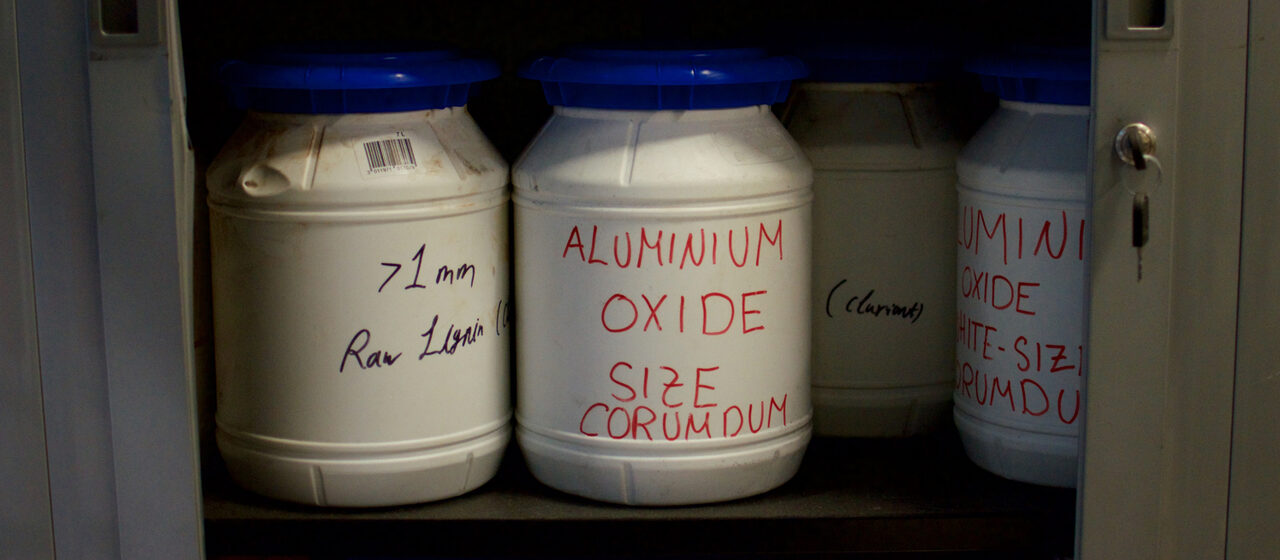 7L
>1mm
Raw Lignin (
ALUMINIUM
OXIDE
SIZE
CORUMDUM
(Clariant)
LUMINI
OXIDE
HITE-SIZ
ORUMDU